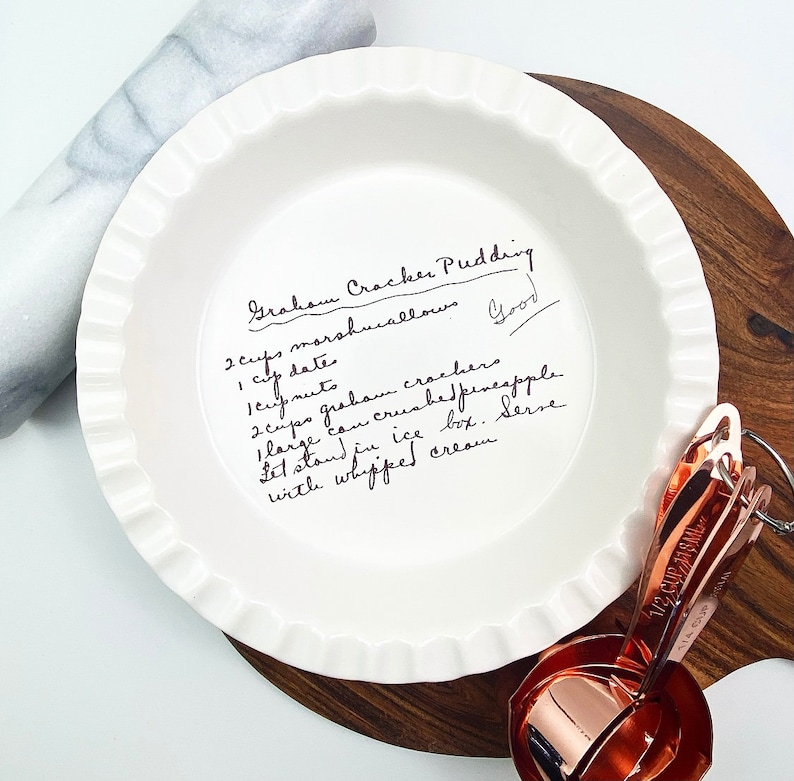 Graham Cracker Pudding
Good
2 cups marshmallows
1 cup dates
1 cup nuts
2 cups graham crackers
1 large can crushed pineapple
Let stand in ice box. Serve
with whipped cream
1/2 CUP 118ML
1/4 CUP